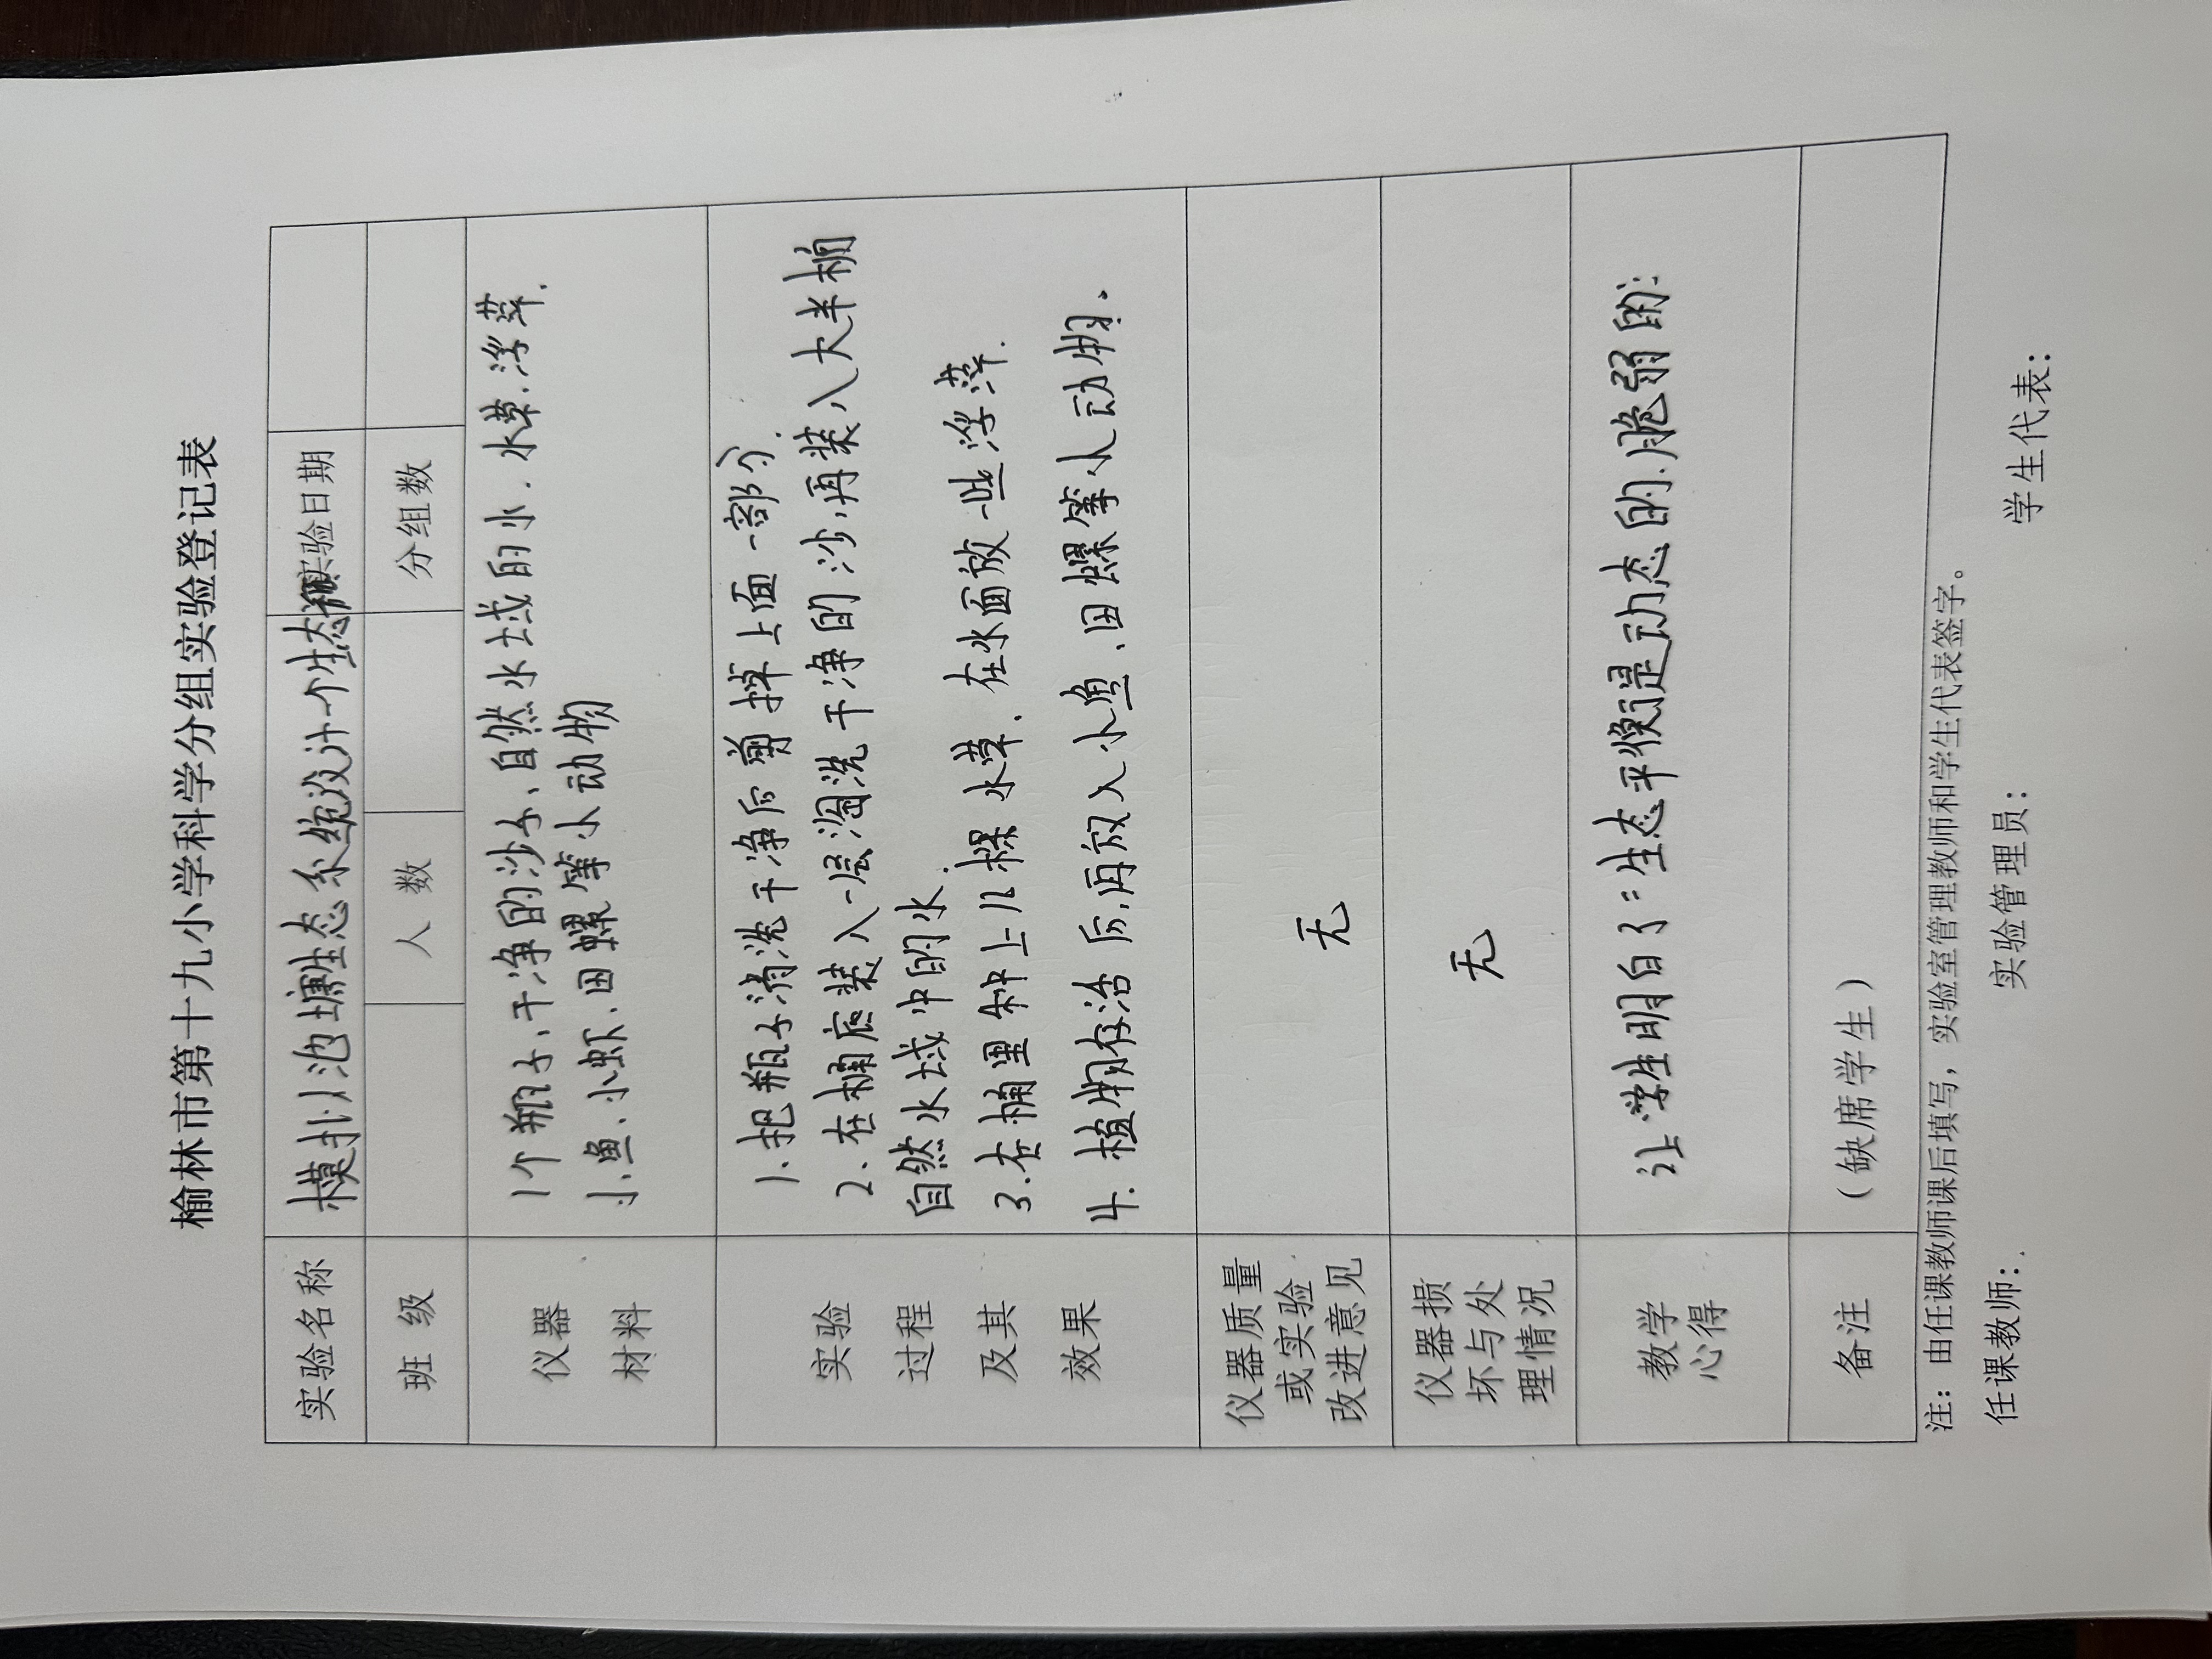 榆林市第十九小学科学分组实验登记表
实验名称 模拟池塘生态系统设计个生态瓶 实验日期
班 级 人 数 分组数
仪器
材料
1个瓶子、干净的沙子、自然水域的水.水草.浮萍.
小鱼.小虾.田螺等小动物
实验
过程
及其
效果
1.把瓶子清洗干净后剪掉上面一部分.
2.在桶底装入一层淘洗干净的沙,再装入大半桶
自然水域中的水.
3.在桶里种上几棵水草.在水面放一些浮萍.
4.植物存活后,再放入小鱼、田螺等小动物。
仪器质量
或实验
改进意见
无
仪器损
坏与处
理情况
无
教学
心得
让学生明白了:生态平衡是动态的.脆弱的.
备注
(缺席学生)
注:由任课教师课后填写,实验室管理教师和学生代表签字。
任课教师: 实验管理员: 学生代表: